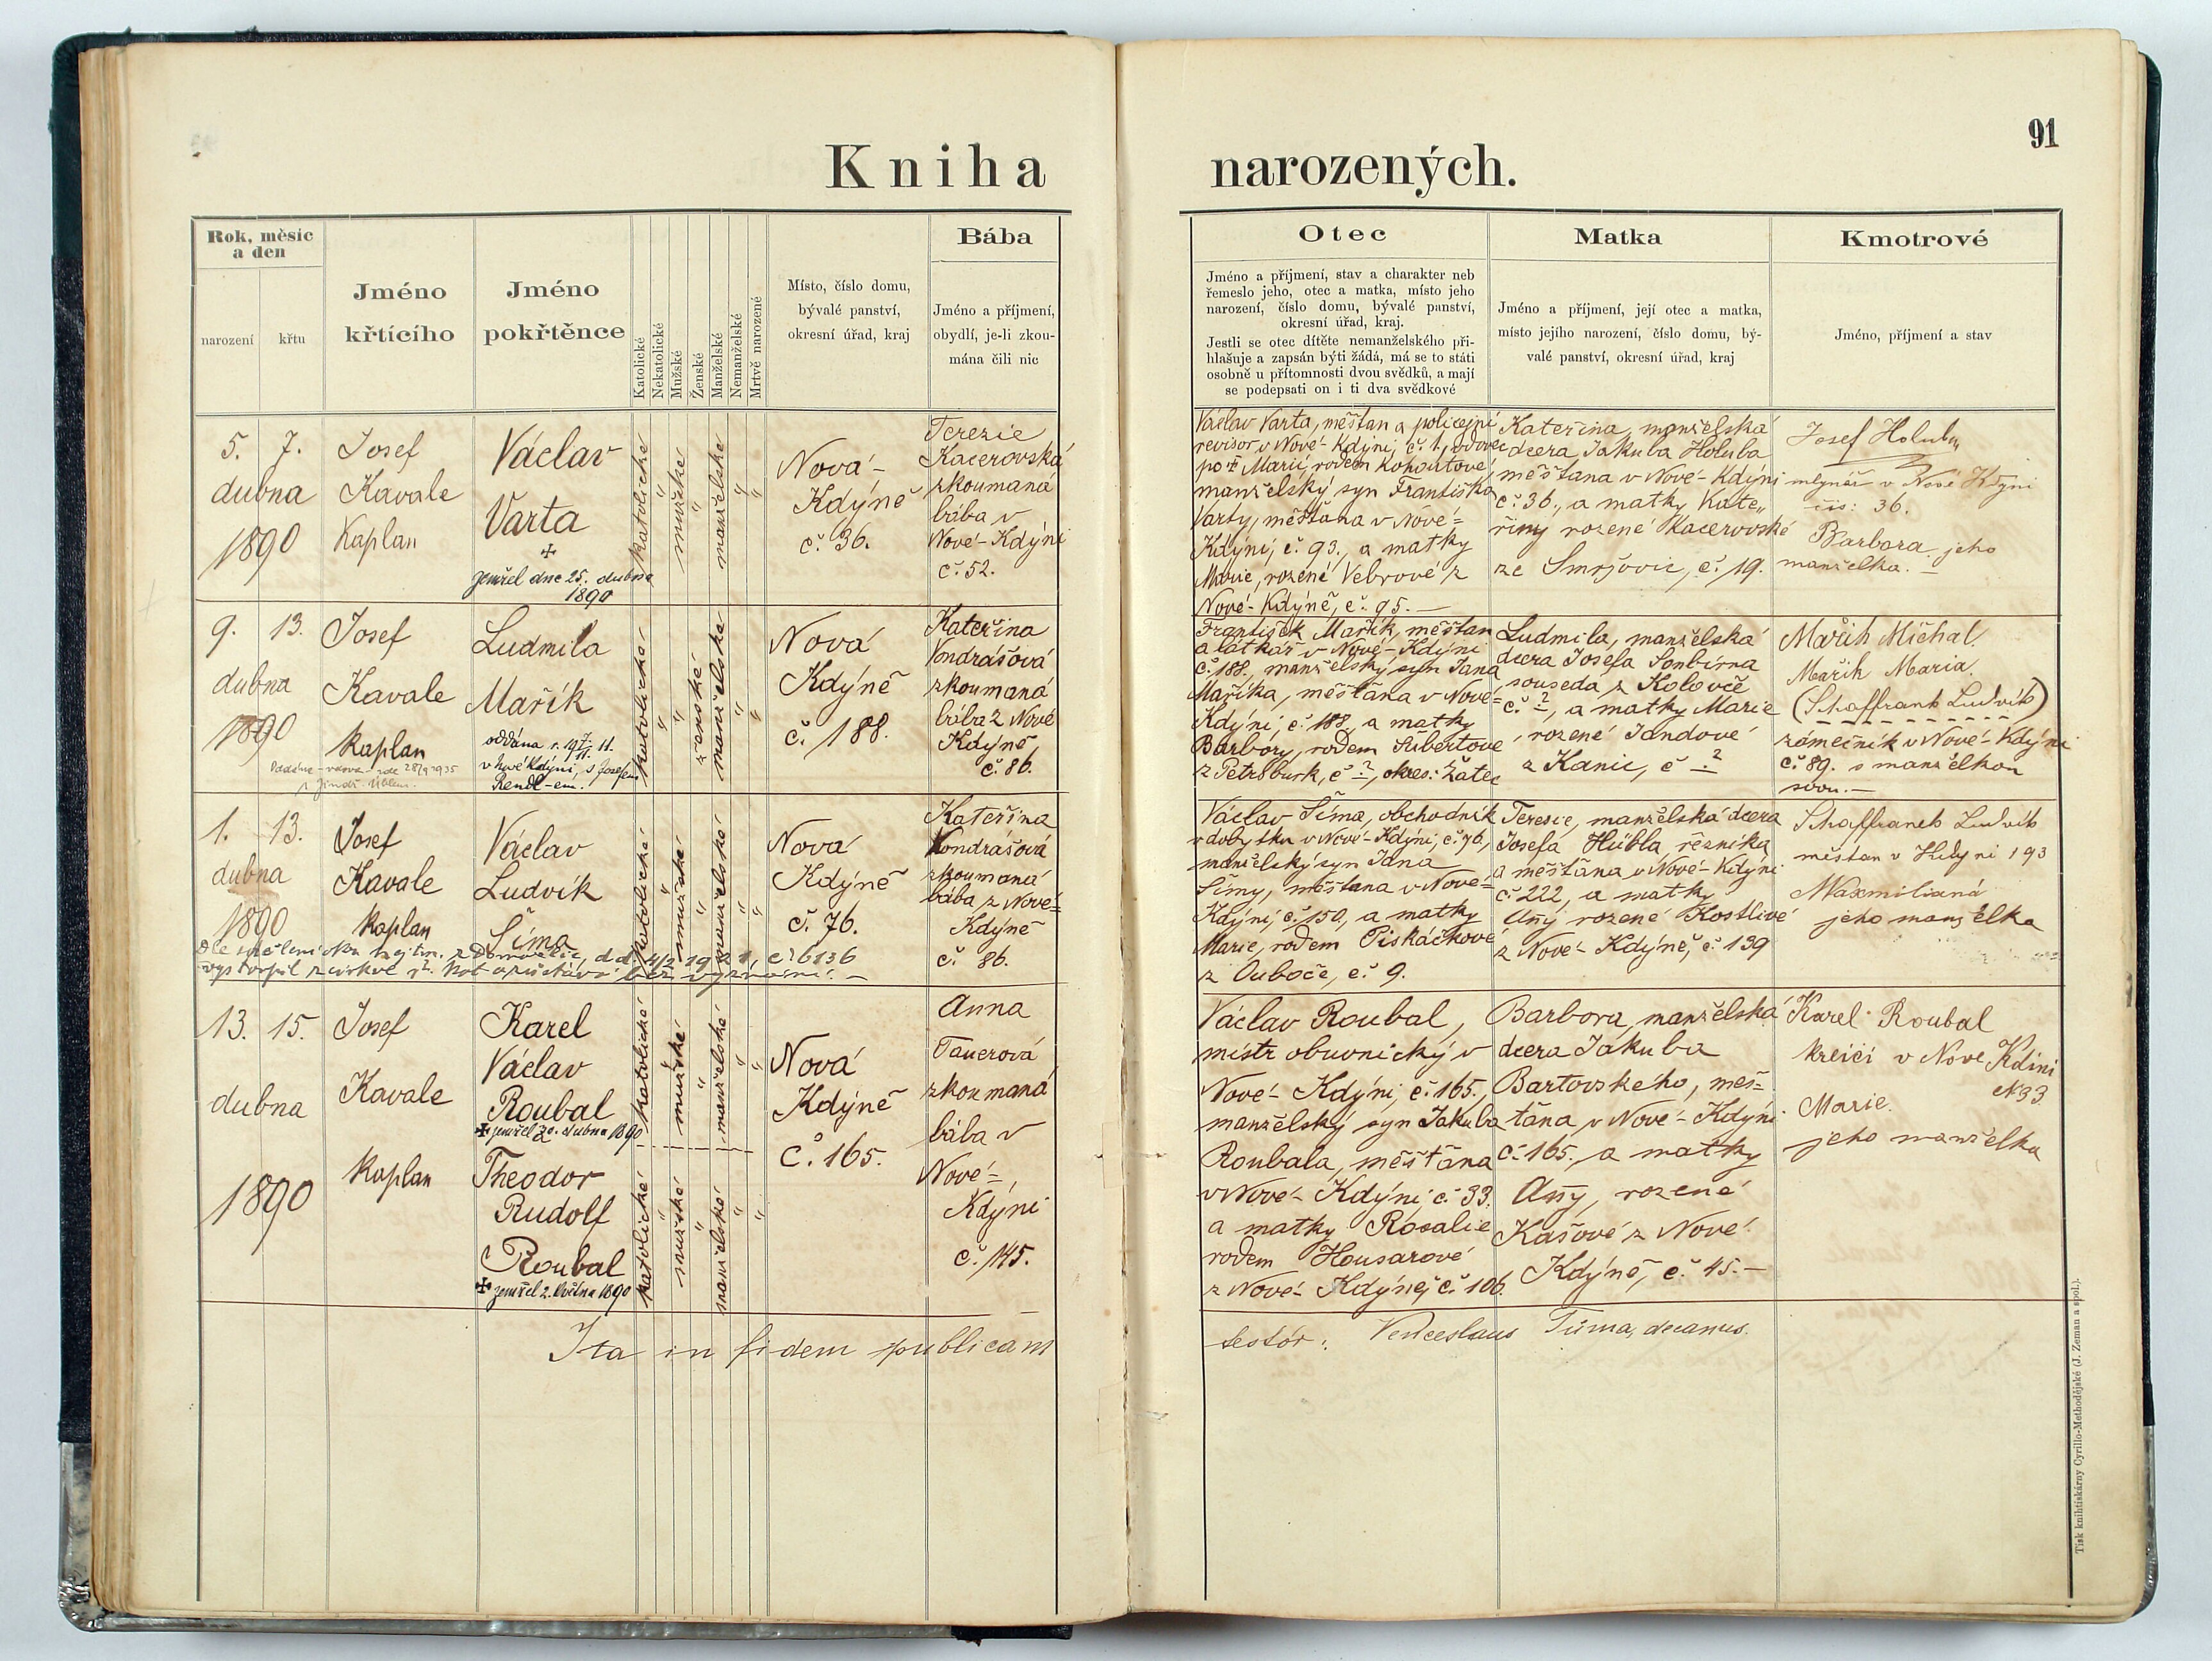 91
Kniha narozených.
Rok, měsíc
a den
narození
křtu
Jméno
křtícího
Jméno
pokřtěnce
Katolické
Nekatolické
Mužské
Ženské
Manželské
Nemanželské
Mrtvě narozené
Místo, číslo domu,
bývalé panství,
okresní úřad, kraj
Bába
Jméno a příjmení,
obydlí, je-li zkou-
mána čili nic
Otec
Jméno a příjmení, stav a charakter neb
řemeslo jeho, otec a matka, místo jeho
narození, číslo domu, bývalé panství,
okresní úřad, kraj.
Jestli se otec dítěte nemanželského při-
hlašuje a zapsán býti žádá, má se to státi
osobně u přítomnosti dvou svědků, a mají
se podepsati on i ti dva svědkové
Matka
Jméno a příjmení, její otec a matka,
místo jejího narození, číslo domu, bý-
valé panství, okresní úřad, kraj
Kmotrové
Jméno, příjmení a stav
5. 7.
dubna
1890
Josef
Kavale
Kaplan
Václav
Varta
zemřel dne 25. dubna
1890
katolické
"
mužské
"
manželské
"
"
Nová-
Kdýně
č. 36.
Terezie
Kacerovská
zkoumaná
bába v
Nové-Kdýni
č. 52.
Václav Varta, měšťan a policejní
revisor v Nové-Kdýni, č. 1, vdovec
po Marii, rodem Kohoutové,
manželský syn Františka
Varty, měšťana v Nové=
Kdýni, č. 93., a matky
Marie, rozené Vebrové z
Nové-Kdýně, č. 95.—
Kateřina, manželská
dcera Jakuba Holuba
měšťana v Nové-Kdýni
č. 36., a matky Kate„
řiny rozené Kacerovské
ze Smržovic, č. 19.
Josef Holub
mlynář v Nové Kdyni
čis: 36.
Barbora jeho
manželka.
9. 13.
dubna
1890
Josef
Kavale
kaplan
Ludmila
Mařík
oddána
v Nové Kdýni, s Josefem
Rendl-em.
katolické
"
"
ženské
manželské
"
"
Nová
Kdýně
č. 188.
Kateřina
Vondrášová
zkoumaná
bába z Nové
Kdýně
č. 86.
František Mařík, měšťan
a látkař v Nové-Kdýni
č. 188, manželský syn Jana
Maříka, měšťana v Nové=
Kdýni, č. 188, a matky
Barbory, rodem Šibertove
z Petrsburk, č ?, okres: Žatec
Ludmila, manželská
dcera Josefa
souseda z Koloveč
č. ?, a matky Marie
rozené Jandové
z Kanic, č ?
Mařik Michal
Mařik Maria
(Schaffrank Ludvík)
zámečník v Nové-Kdýni
č. 89. s manželkou
svou.—
1. 13.
dubna
1890
Josef
Kavale
kaplan
Václav
Ludvík
Šíma
katolické
"
mužské
"
manželské
"
"
Nová
Kdýně
č. 76.
Kateřina
Vondrášová
zkoumaná
bába z Nové=
Kdýně
č. 86.
vystoupil z církve
č. 6136
Václav Šíma, obchodník
v dobytku v Nové-Kdýni, č. 76,
manželský syn Jana
Šímy, měšťana v Nové=
Kdýni, č. 150, a matky
Marie, rodem Piskáčkové
z Ouboče, č. 9.
Teresie, manželská dcera
Josefa Hübla, řezníka
a měšťana v Nové-Kdýni
č. 222, a matky
Any rozené Kostlivé
z Nové-Kdýně, č. 139
Schaffranek Ludvik
měštan v Kdyni 193
Maxmilianá
jeho manželka
13. 15.
dubna
1890
Josef
Kavale
kaplan
Karel
Václav
Roubal
zemřel 30. dubna 1890
Theodor
Rudolf
Roubal
zemřel 2. května 1890
katolické
"
mužské
"
manželské
"
"
katolické
"
mužské
"
manželské
"
"
Nová
Kdýně
č. 165.
Anna
Tauerová
zkoumaná
bába v
Nové=
Kdýni
č. 145.
Václav Roubal,
mistr obuvnický v
Nové-Kdýni, č. 165.,
manželský syn Jakuba
Roubala, měšťana
v Nové-Kdýni, č. 33.
a matky Rosalie
rodem Housarové
z Nové-Kdýně, č. 106.
Barbora, manželská
dcera Jakuba
Bartovského, měš=
ťana v Nové-Kdýni
č. 165., a matky
Any, rozené
Kašové z Nové-
Kdýně, č. 45.—
Karel Roubal
kreičí v Nove Kdini
N 33
Marie
jeho manželka
Ita in fidem publicam
testór: Venceslaus Tůma, decanus.
Tisk knihtiskárny Cyrillo-Methodějské (J. Zeman a spol.).